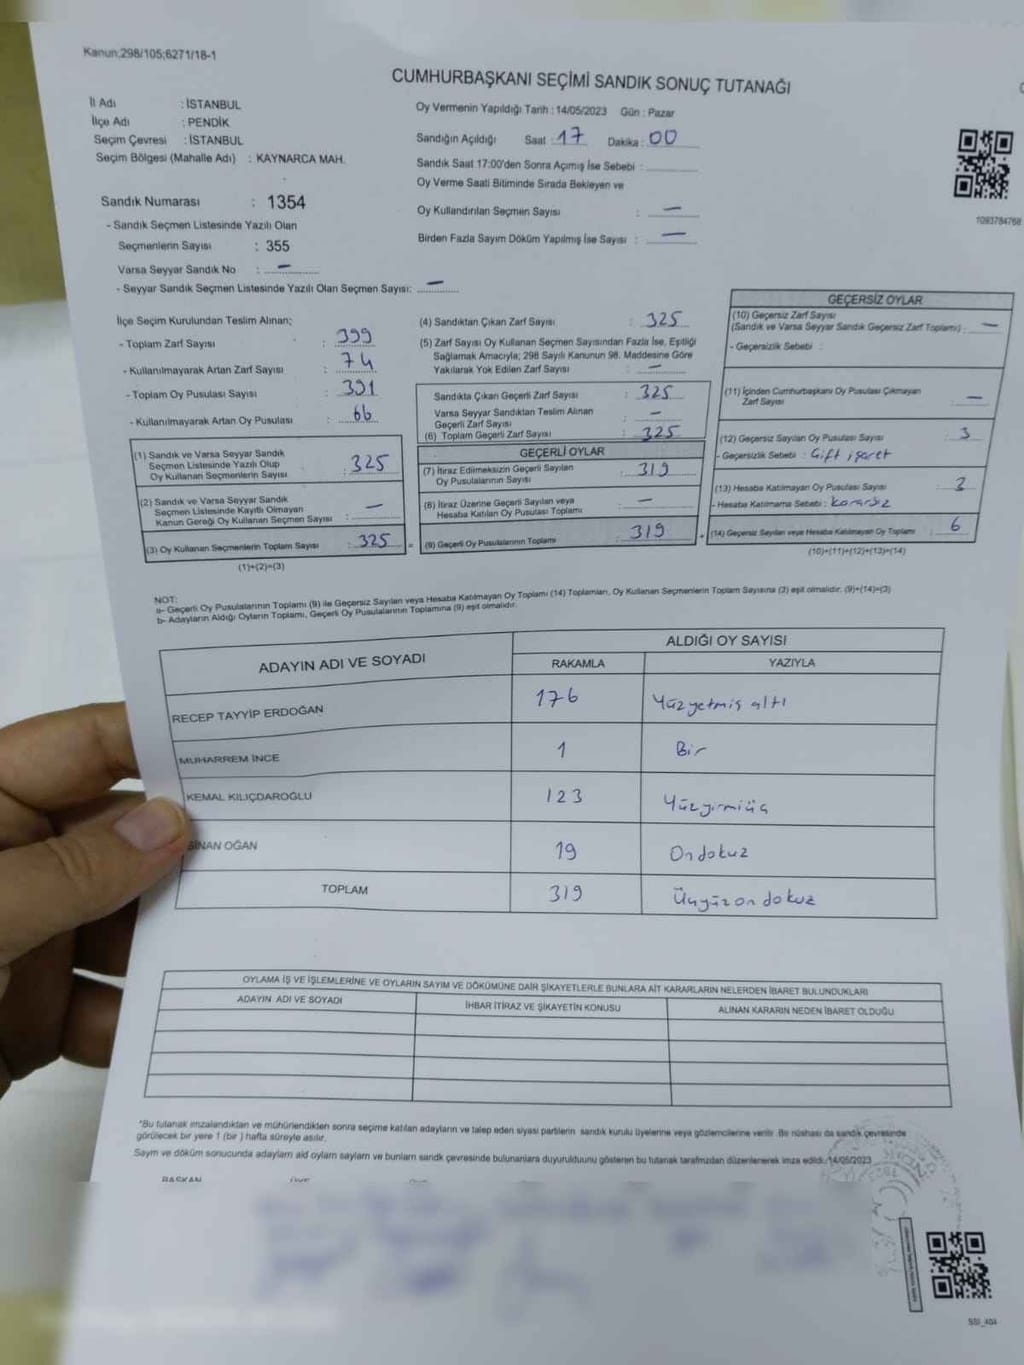 Kanun;298/105;6271/18-1
CUMHURBAŞKANI SEÇİMİ SANDIK SONUÇ TUTANAĞI
İl Adı : İSTANBUL
İlçe Adı : PENDİK
Seçim Çevresi : İSTANBUL
Seçim Bölgesi (Mahalle Adı) : KAYNARCA MAH.
Oy Vermenin Yapıldığı Tarih : 14/05/2023 Gün : Pazar
Sandığın Açıldığı Saat : 17 Dakika : 00
Sandık Saat 17:00'den Sonra Açımış İse Sebebi :
Oy Verme Saati Bitiminde Sırada Bekleyen ve
Oy Kullandırılan Seçmen Sayısı : —
Birden Fazla Sayım Döküm Yapılmış İse Sayısı : —
1093784768
Sandık Numarası : 1354
- Sandık Seçmen Listesinde Yazılı Olan
Seçmenlerin Sayısı : 355
Varsa Seyyar Sandık No : —
- Seyyar Sandık Seçmen Listesinde Yazılı Olan Seçmen Sayısı: —
İlçe Seçim Kurulundan Teslim Alınan;
- Toplam Zarf Sayısı : 399
- Kullanılmayarak Artan Zarf Sayısı : 74
- Toplam Oy Pusulası Sayısı : 391
- Kullanılmayarak Artan Oy Pusulası : 66
(1) Sandık ve Varsa Seyyar Sandık
Seçmen Listesinde Yazılı Olup
Oy Kullanan Seçmenlerin Sayısı : 325
(2) Sandık ve Varsa Seyyar Sandık
Seçmen Listesinde Kayıtlı Olmayan
Kanun Gereği Oy Kullanan Seçmen Sayısı : —
(3) Oy Kullanan Seçmenlerin Toplam Sayısı : 325
(1)+(2)=(3)
(4) Sandıktan Çıkan Zarf Sayısı : 325
(5) Zarf Sayısı Oy Kullanan Seçmen Sayısından Fazla İse, Eşitliği
Sağlamak Amacıyla; 298 Sayılı Kanunun 98. Maddesine Göre
Yakılarak Yok Edilen Zarf Sayısı : —
Sandıkta Çıkan Geçerli Zarf Sayısı : 325
Varsa Seyyar Sandıktan Teslim Alınan
Geçerli Zarf Sayısı : —
(6) Toplam Geçerli Zarf Sayısı : 325
GEÇERLİ OYLAR
(7) İtiraz Edilmeksizin Geçerli Sayılan
Oy Pusulalarının Sayısı : 319
(8) İtiraz Üzerine Geçerli Sayılan veya
Hesaba Katılan Oy Pusulası Toplamı : —
= (9) Geçerli Oy Pusulalarının Toplamı : 319 +
GEÇERSİZ OYLAR
(10) Geçersiz Zarf Sayısı
(Sandık ve Varsa Seyyar Sandık Geçersiz Zarf Toplamı) : —
- Geçersizlik Sebebi :
(11) İçinden Cumhurbaşkanı Oy Pusulası Çıkmayan
Zarf Sayısı : —
(12) Geçersiz Sayılan Oy Pusulası Sayısı : 3
- Geçersizlik Sebebi : Çift işaret
(13) Hesaba Katılmayan Oy Pusulası Sayısı : 3
- Hesaba Katılmama Sebebi : Kararsız
(14) Geçersiz Sayılan veya Hesaba Katılmayan Oy Toplamı : 6
(10)+(11)+(12)+(13)=(14)
NOT:
a- Geçerli Oy Pusulalarının Toplamı (9) ile Geçersiz Sayılan veya Hesaba Katılmayan Oy Toplamı (14) Toplamları, Oy Kullanan Seçmenlerin Toplam Sayısına (3) eşit olmalıdır. (9)+(14)=(3)
b- Adayların Aldığı Oyların Toplamı, Geçerli Oy Pusulalarının Toplamına (9) eşit olmalıdır.
ADAYIN ADI VE SOYADI ALDIĞI OY SAYISI
RAKAMLA YAZIYLA
RECEP TAYYİP ERDOĞAN 176 Yüzyetmiş altı
MUHARREM İNCE 1 Bir
KEMAL KILIÇDAROĞLU 123 Yüzyirmiüç
SİNAN OĞAN 19 Ondokuz
TOPLAM 319 Üçyüzondokuz
OYLAMA İŞ VE İŞLEMLERİNE VE OYLARIN SAYIM VE DÖKÜMÜNE DAİR ŞİKAYETLERLE BUNLARA AİT KARARLARIN NELERDEN İBARET BULUNDUKLARI
ADAYIN ADI VE SOYADI İHBAR İTİRAZ VE ŞİKAYETİN KONUSU ALINAN KARARIN NEDEN İBARET OLDUĞU
*Bu tutanak imzalandıktan ve mühürlendikten sonra seçime katılan adayların ve talep eden siyasi partilerin sandık kurulu üyelerine veya gözlemcilerine verilir. Bir nüshası da sandık çevresinde
görülecek bir yere 1 (bir) hafta süreyle asılır.
Sayım ve döküm sonucunda adayların aldı oyların sayıları ve bunların sandık çevresinde bulunanlara duyurulduunu gösteren bu tutanak tarafımızdan düzenlenerek imza edildi. 14/05/2023
BAŞKAN
SSI_40A